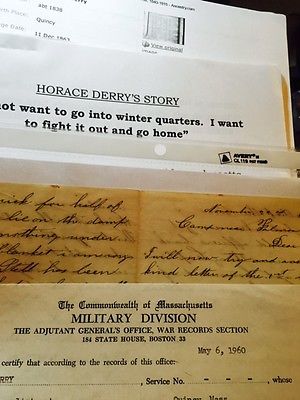 abt 1838
Birth Place:
Quincy
11 Dec 1863
View original image
HORACE DERRY'S STORY
not want to go into winter quarters. I want
to fight it out and go home"
AVERY®
for half of
lie on the damp
nothing under
Blanket is
has been
November
Camp near
Dear
I will now try and
kind letter of the
The Commonwealth of Massachusetts
MILITARY DIVISION
THE ADJUTANT GENERAL'S OFFICE, WAR RECORDS SECTION
184 STATE HOUSE, BOSTON 33
May 6, 1960
certify that according to the records of this office:
RRY, Service No. - - -, whose
Quincy, Mass